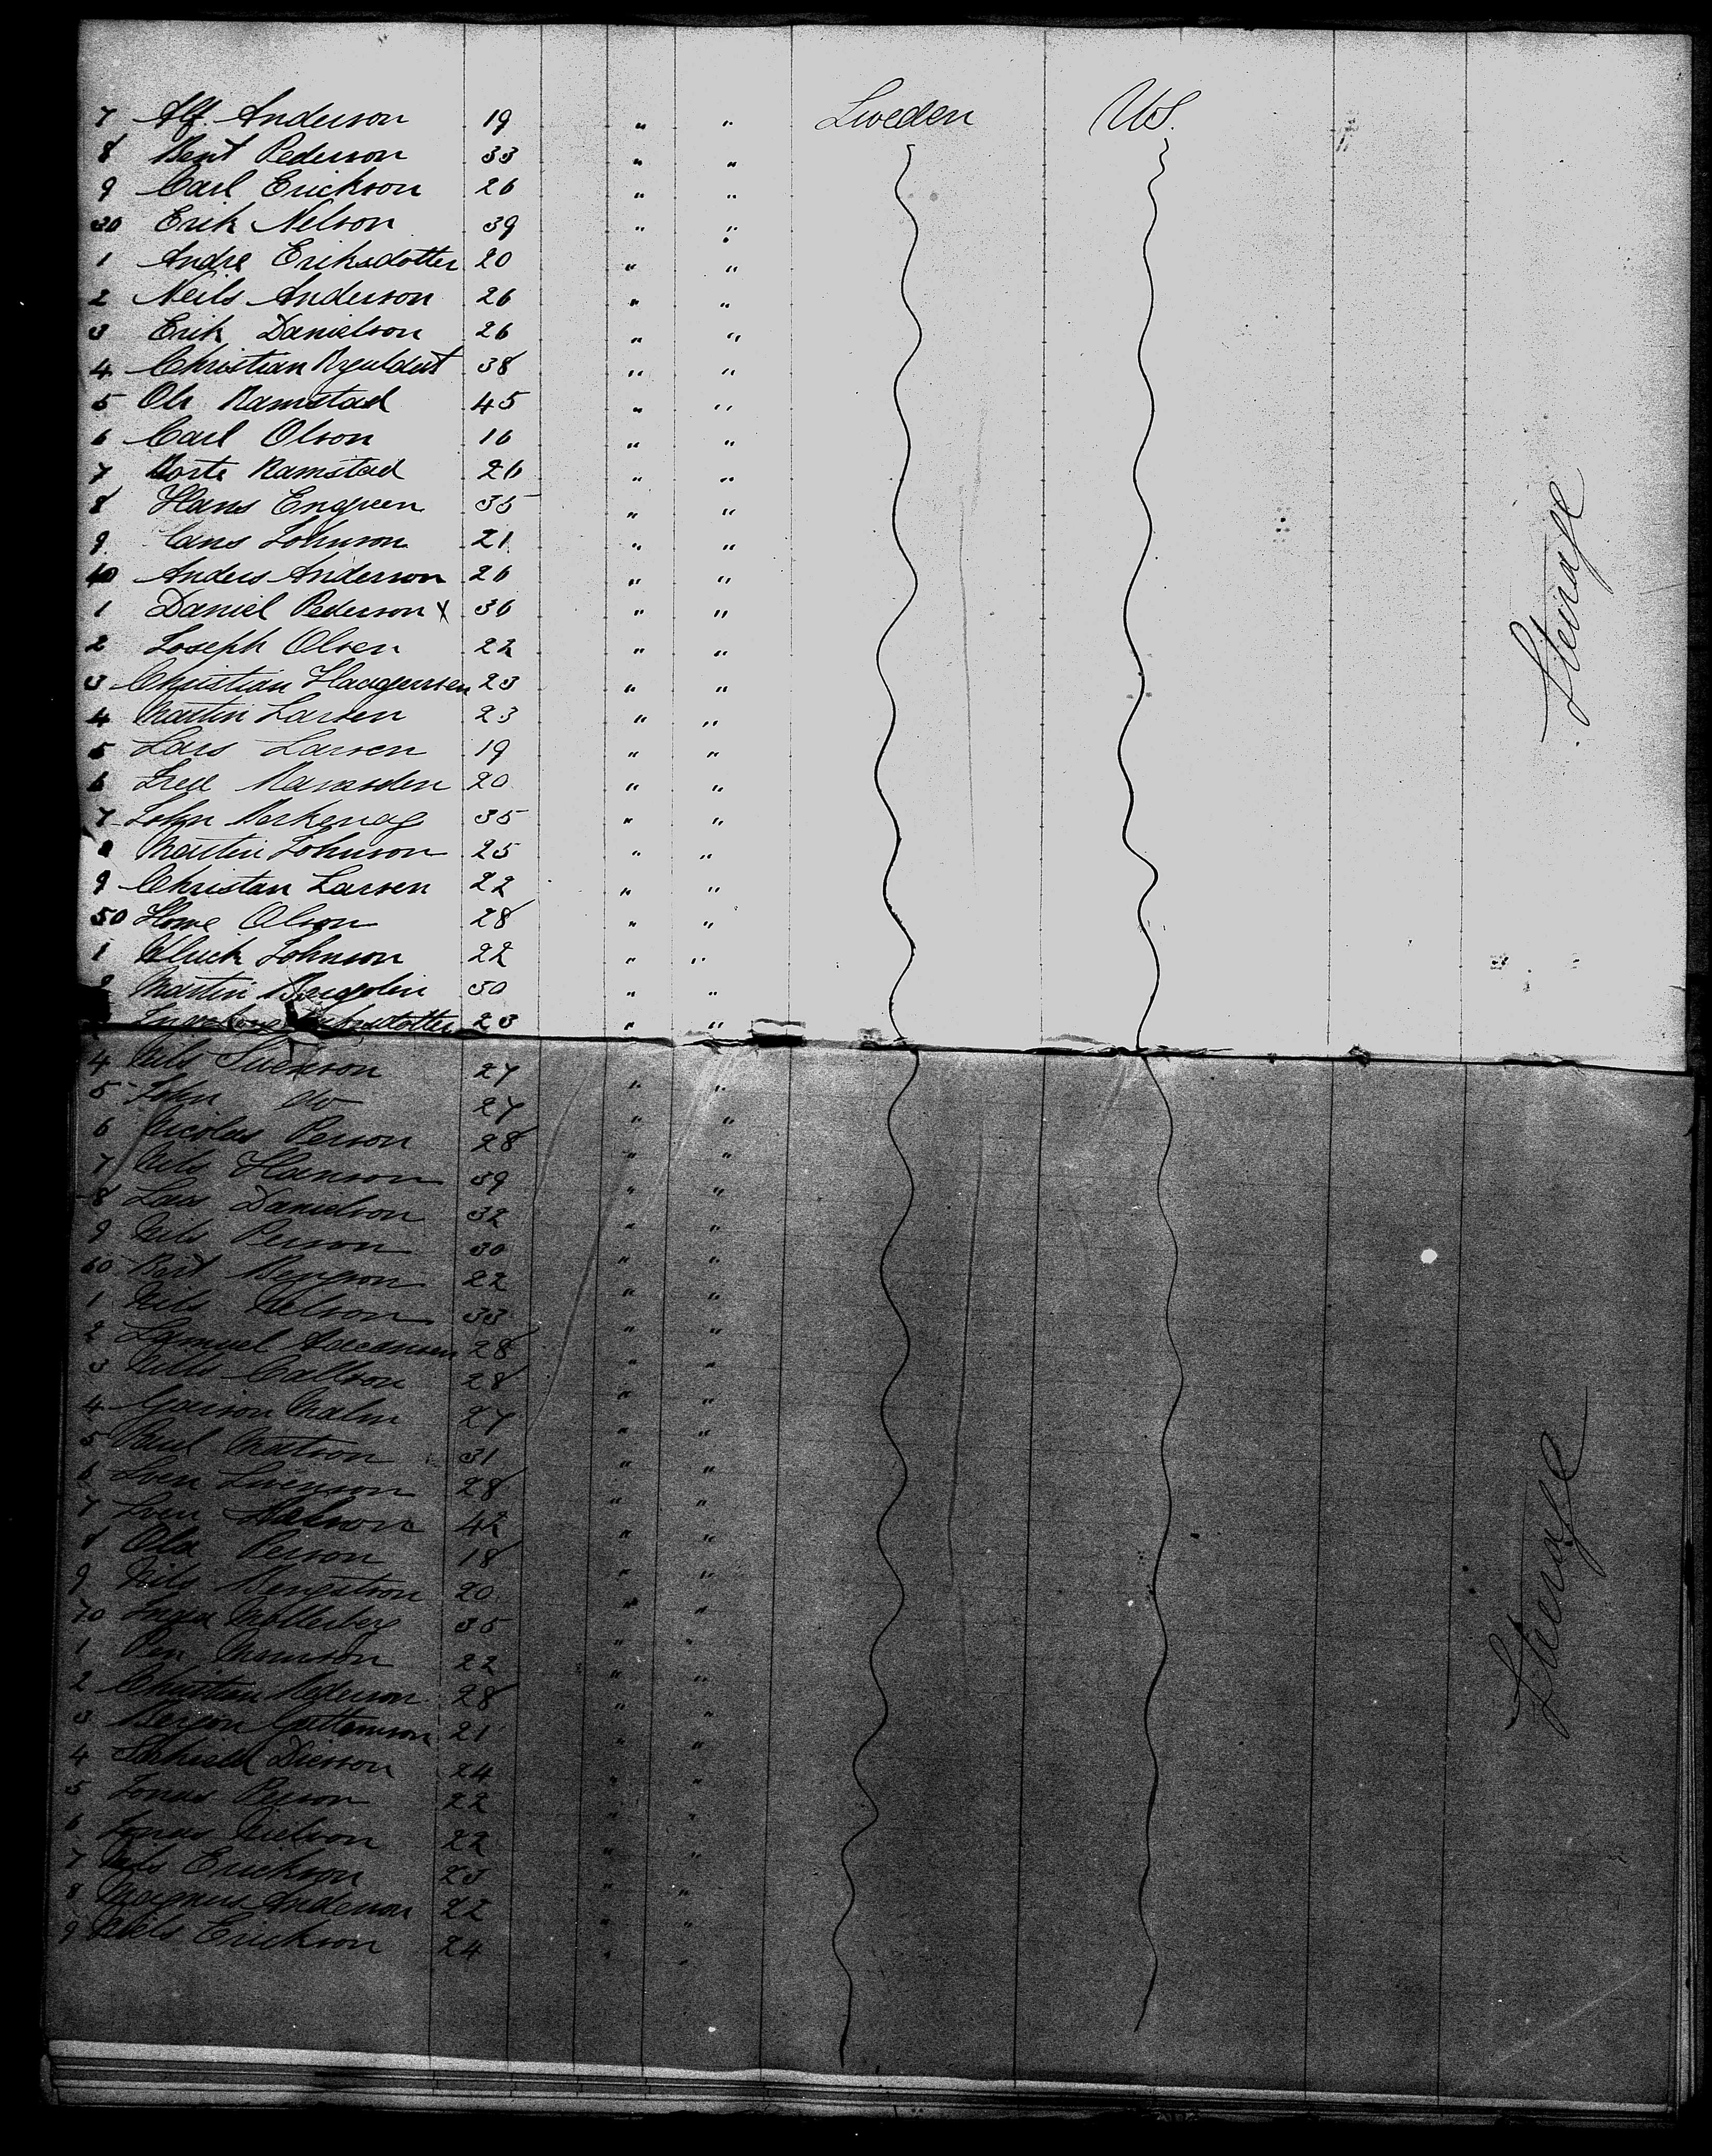 7 Alf Anderson 19 " " Sweden US.
8 Bent Pederson 33 " "
9 Carl Erickson 26 " "
30 Erik Nelson 39 " "
1 Andre Eriksdotter 20 " "
2 Neils Anderson 26 " "
3 Erik Danielson 26 " "
4 Christian 38 " "
5 Ole Ramstad 45 " "
6 Carl Olson 16 " "
7 Ramstad 26 " "
8 Hans Engreen 35 " "
9 Johnson 21 " "
40 Anders Anderson 26 " "
1 Daniel Pederson x 36 " "
2 Joseph Olsen 22 " "
3 Christian Haagensen 23 " "
4 Martin Larsen 23 " "
5 Lars Larsen 19 " "
6 20 " "
7 John 35 " "
8 Martin Johnson 25 " "
9 Christan Larsen 22 " "
50 Olson 28 " "
1 Johnson 22 " "
2 Martin 30 " "
23 " "
4 Nils Swenson 27 " "
5 John do 27 " "
6 Nicolas Person 28 " "
7 Nils Hanson 39 " "
8 Lars Danielson 32 " "
9 Nils Person 30 " "
60 22 " "
1 Nils Nelson 33 " "
2 Samuel 28 " "
3 Nills Callson 28 " "
4 Malm 27 " "
5 Paul Matson 31 " "
6 Sven Swenson 28 " "
7 Sven 42 " "
8 Ola Person 18 " "
9 Nils Bengtson 20 " "
70 Inga 35 " "
1 22 " "
2 Christian Pederson 28 " "
3 21 " "
4 24 " "
5 Jonas Person 22 " "
6 Jonas Nielson 22 " "
7 Nils Erickson 23 " "
8 Magnus Anderson 22 " "
9 Niels Erickson 24 " "
Steirage
Steirage